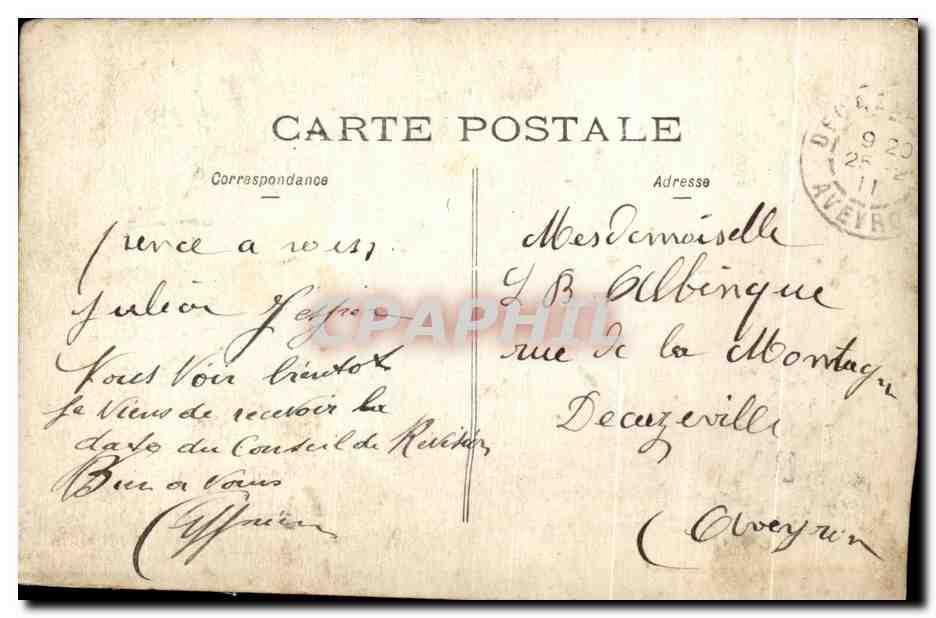 CARTE POSTALE
Correspondance
Julien J'espère
Vous Voir bientot
je Viens de recevoir la
date du Conseil de Revision
Bien a Vous
Adresse
Mesdemoiselle
L B Albinque
rue de la Montagn
Decazeville
(Aveyron
9 20
25
11
AVEYRO
CPAPHIL